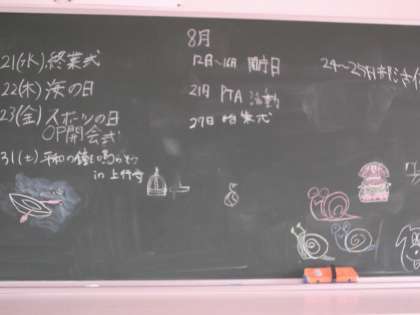 21(水) 終業式
22(木) 海の日
23(金) スポーツの日
OP開会式
31(土) 平和の鐘を鳴らそう
in 上行寺
8月
12日〜16日 閉庁日
21日 PTA 活動
27日 始業式
24〜25日